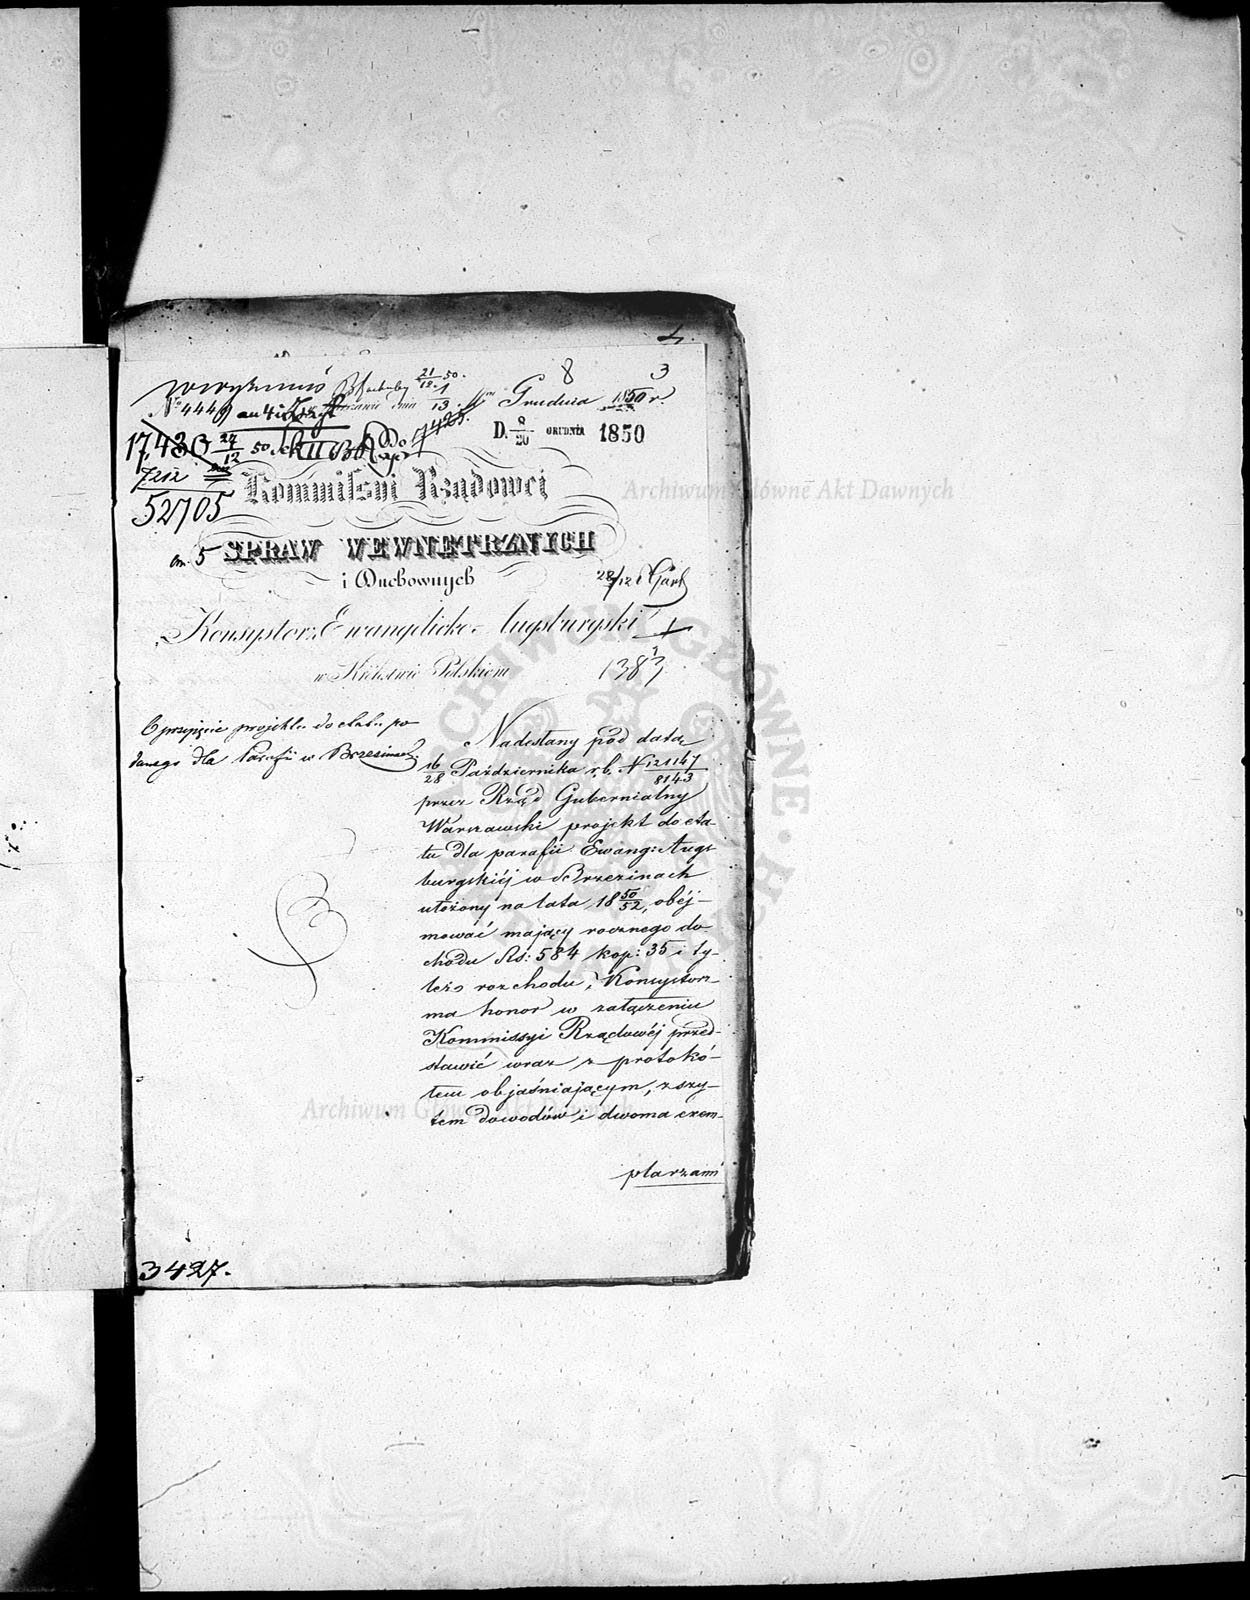 8
3
21/12 50.
Nº 4449
Grudnia 1850 r.
17,430 27/12 50
17425.
D. 8/20 GRUDNIA 1850
52705
Kommissyi Rządowej
SPRAW WEWNĘTRZNYCH
i Duchownych
28/12
Konsystorz Ewangelicko-Augsburgski
w Królestwie Polskiem
1383
O przyjęcie projektu do etatu po-
danego dla Parafii w Brzezinach.
Nadesłany pod datą
16/28 Października r.b. N 121147/8143
przez Rząd Gubernialny
Warszawski projekt do eta-
tu dla parafii Ewang: Augs
burgskiéj w Brzezinach
ułożony na lata 18 50/52, obéj-
mować mający rocznego do-
chodu Rs: 584 kop: 35 i ty-
leż rozchodu, Konsystorz
ma honor w załączeniu
Kommissyi Rządowéj przed-
stawić wraz z protokó-
łem objaśniającym, zszy-
tem dowodów i dwoma exem-
plarzami
3427.
Archiwum Główne Akt Dawnych
Archiwum Główne Akt Dawnych
ARCHIWUM GŁÓWNE